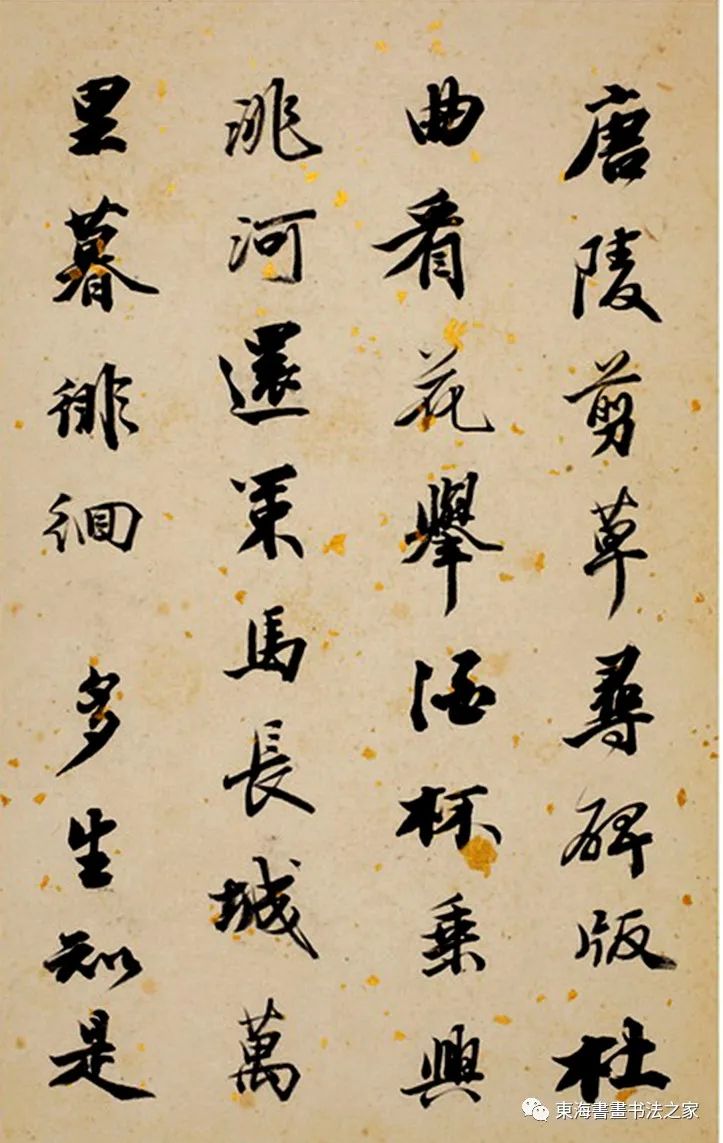 唐陵剪草尋碑版杜
曲看花舉酒杯乗興
洮河還策馬長城萬
里暮徘徊 多生知是
東海書畫书法之家